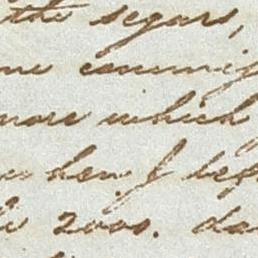 the segars,
me commis
more which
when I left
2000. da